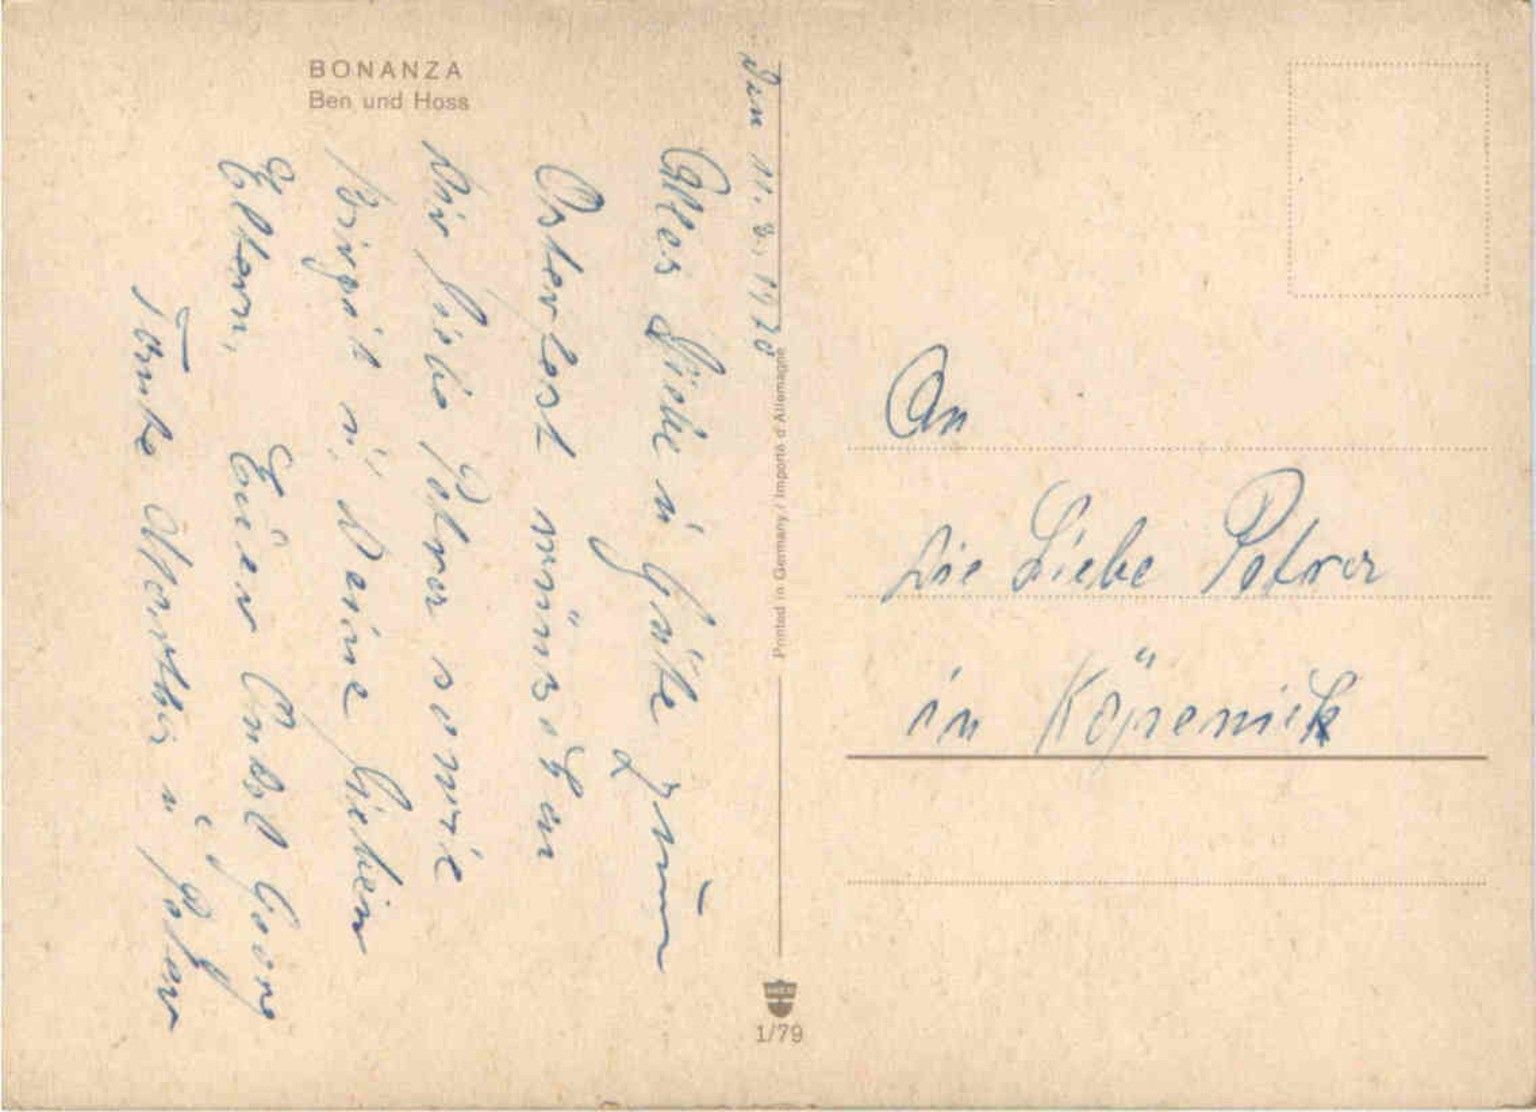 BONANZA
Ben und Hoss
Den 11. 3. 1970
Alles Liebe ŭ Gute zŭm
Osterfest wünschen
Dir liebe Petra sowie
Birgit ŭ. Deine lieben
Eltern, Eŭer Onkel Georg
Tante Martha ŭ Peter
Printed in Germany / Importé d'Allemagne
1/79
An
die Liebe Petra
in Köpenick